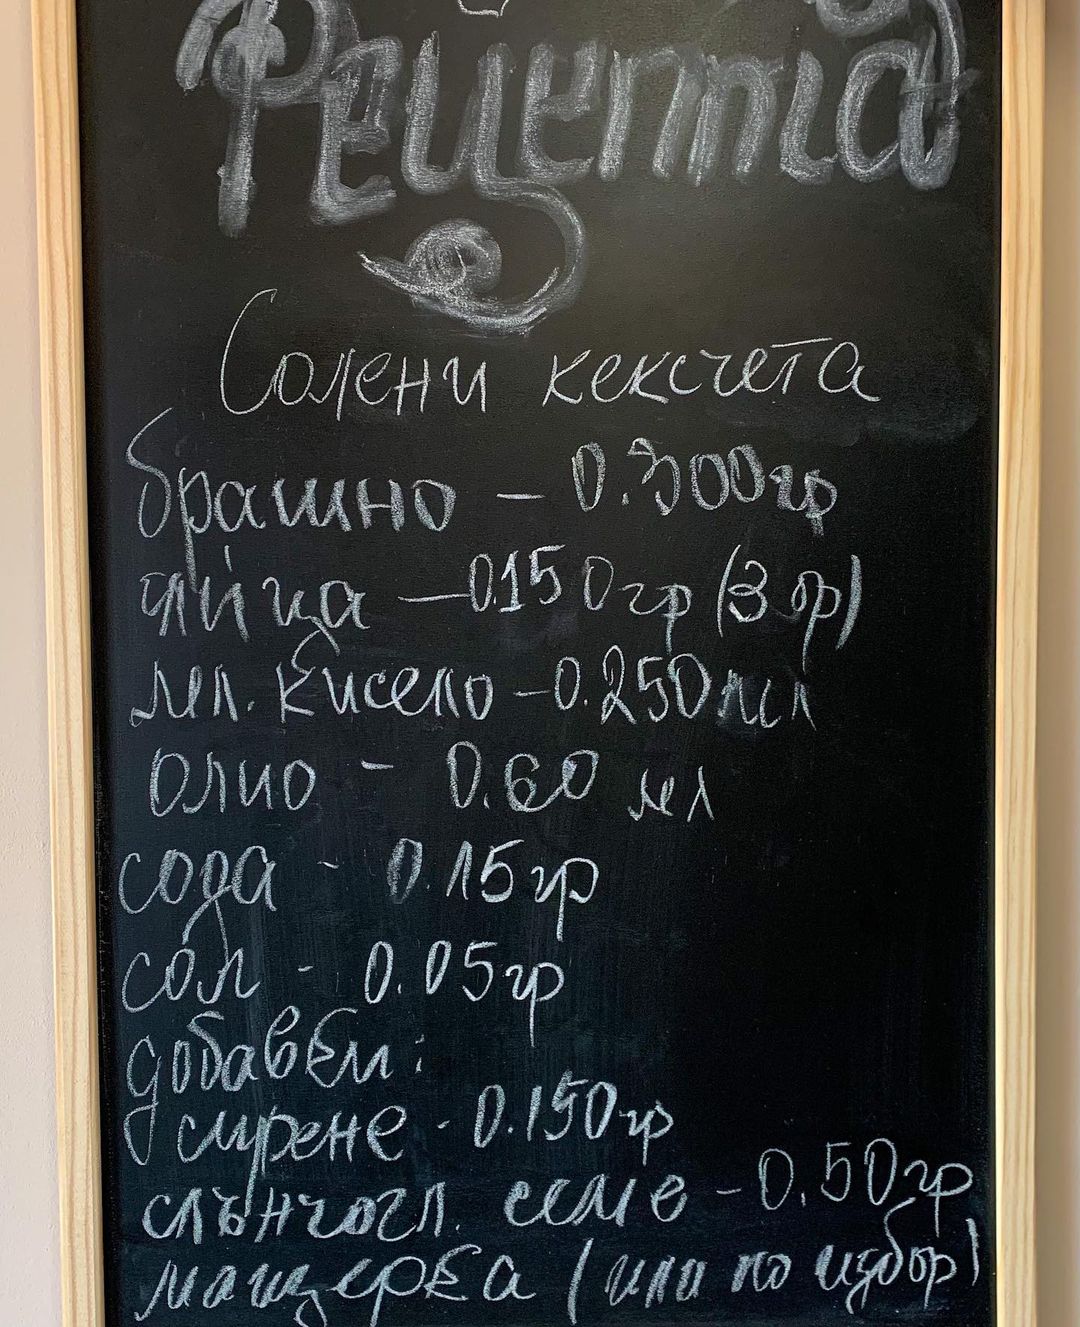 Рецепта
Солени кексчета
брашно - 0.300гр
яйца - 0.150гр (3 бр)
мл. кисело - 0.250мл
олио - 0.60 мл
сода - 0.15гр
сол - 0.05гр
добавем:
сирене - 0.150гр
слънчогл. семе - 0.50гр
мащерка (или по избор)